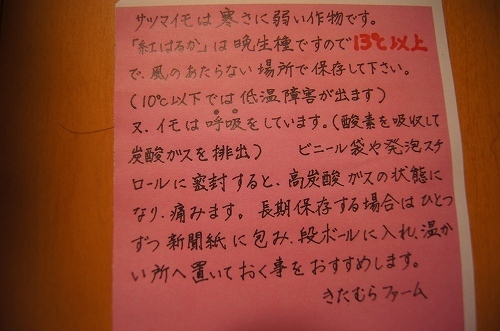 サツマイモは寒さに弱い作物です。
「紅はるか」は晩生種ですので13℃以上
で、風のあたらない場所で保存して下さい。
(10℃以下では低温障害が出ます)
又、イモは呼吸をしています。(酸素を吸収して
炭酸ガスを排出) ビニール袋や発泡スチ
ロールに密封すると、高炭酸ガスの状態に
なり、痛みます。長期保存する場合はひとつ
ずつ新聞紙に包み、段ボールに入れ、温か
い所へ置いておく事をおすすめします。
きたむらファーム